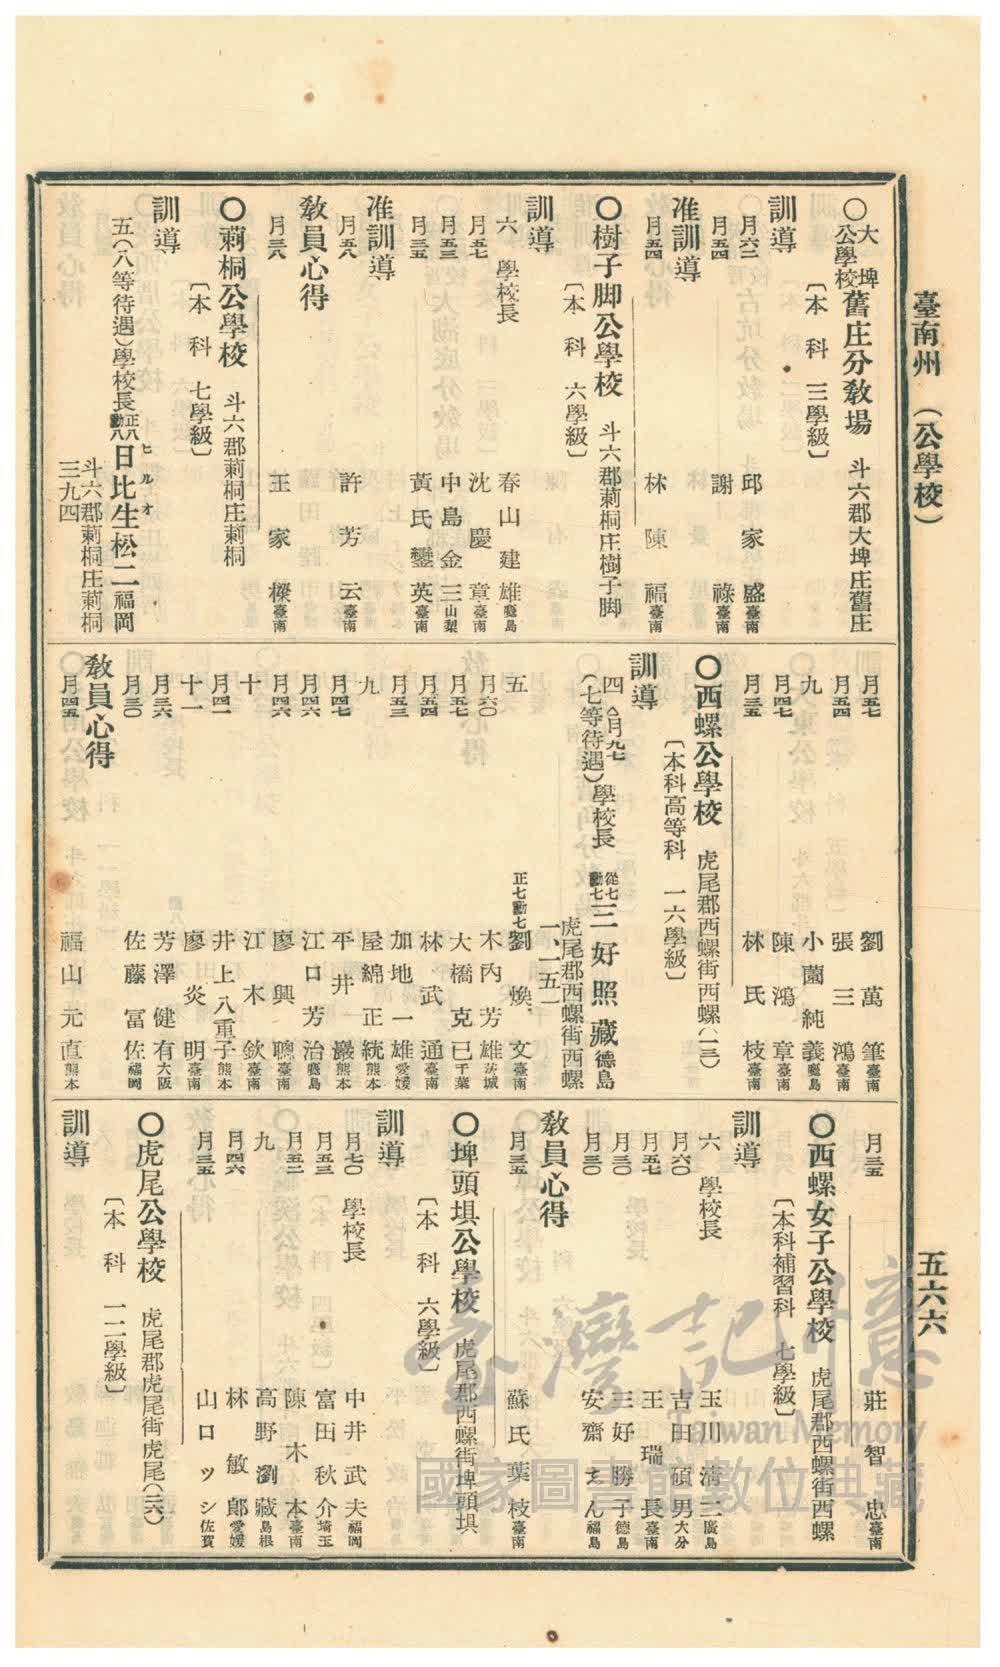 臺南州 (公學校)
五六六
〇大埤公學校舊庄分教場 斗六郡大埤庄舊庄
〔本科 三學級〕
訓導
月六二 邱家盛 臺南
月五四 謝祿 臺南
准訓導
月五四 林陳福 臺南
〇樹子脚公學校 斗六郡莿桐庄樹子脚
〔本科 六學級〕
訓導
六 學校長 春山建雄
月五七 沈慶章 臺南
月五三 中島金三 山梨
月三五 黃氏鑾英 臺南
准訓導
月五八 許芳云 臺南
教員心得
月三八 王家樑 臺南
〇莿桐公學校 斗六郡莿桐庄莿桐
〔本科 七學級〕
訓導
五(八等待遇)學校長 正八勳八 日比生松二 福岡
ヒルオ
斗六郡莿桐庄莿桐
三九四
月五七 劉萬筆 臺南
月五四 張三鴻 臺南
九 小薗純義
月四七 陳鴻章 臺南
月三五 林氏枝 臺南
〇西螺公學校 虎尾郡西螺街西螺(一三)
〔本科高等科 一六學級〕
訓導
四 月九七(七等待遇)學校長 從七勳七 三好照藏 德島
虎尾郡西螺街西螺
一、一五一
五 正七勳七 劉煥文 臺南
月六〇 木內芳雄 茨城
月五七 大橋克己 千葉
月五四 林武通 臺南
月五三 加地一雄 愛媛
九 屋綿正統 熊本
月四七 平井巖 熊本
月四六 江口芳治
月四六 廖興聰 臺南
十 江木欽 臺南
月四一 井上八重子 熊本
十一 廖炎明 臺南
月三六 芳澤健有 大阪
月三〇 佐藤冨佐 福岡
教員心得
月四五 福山元直 熊本
月三五 莊智忠 臺南
〇西螺女子公學校 虎尾郡西螺街西螺
〔本科補習科 七學級〕
訓導
六 學校長 玉川清三 廣島
月六〇 吉田碩男 大分
月五七 王瑞長 臺南
月三〇 三好勝子 德島
月三〇 安齋ん 福島
教員心得
月三五 蘇氏葉枝 臺南
〇埤頭埧公學校 虎尾郡西螺街埤頭埧
〔本科 六學級〕
訓導
月七〇 學校長 中井武夫 福岡
月五三 富田秋介 埼玉
月五二 陳木本 臺南
九 高野瀏藏 島根
月四六 林敏郎 愛媛
月三五 山口ツシ 佐賀
〇虎尾公學校 虎尾郡虎尾街虎尾(二六)
〔本科 一二學級〕
訓導
臺灣記憶
Taiwan Memory
國家圖書館數位典藏